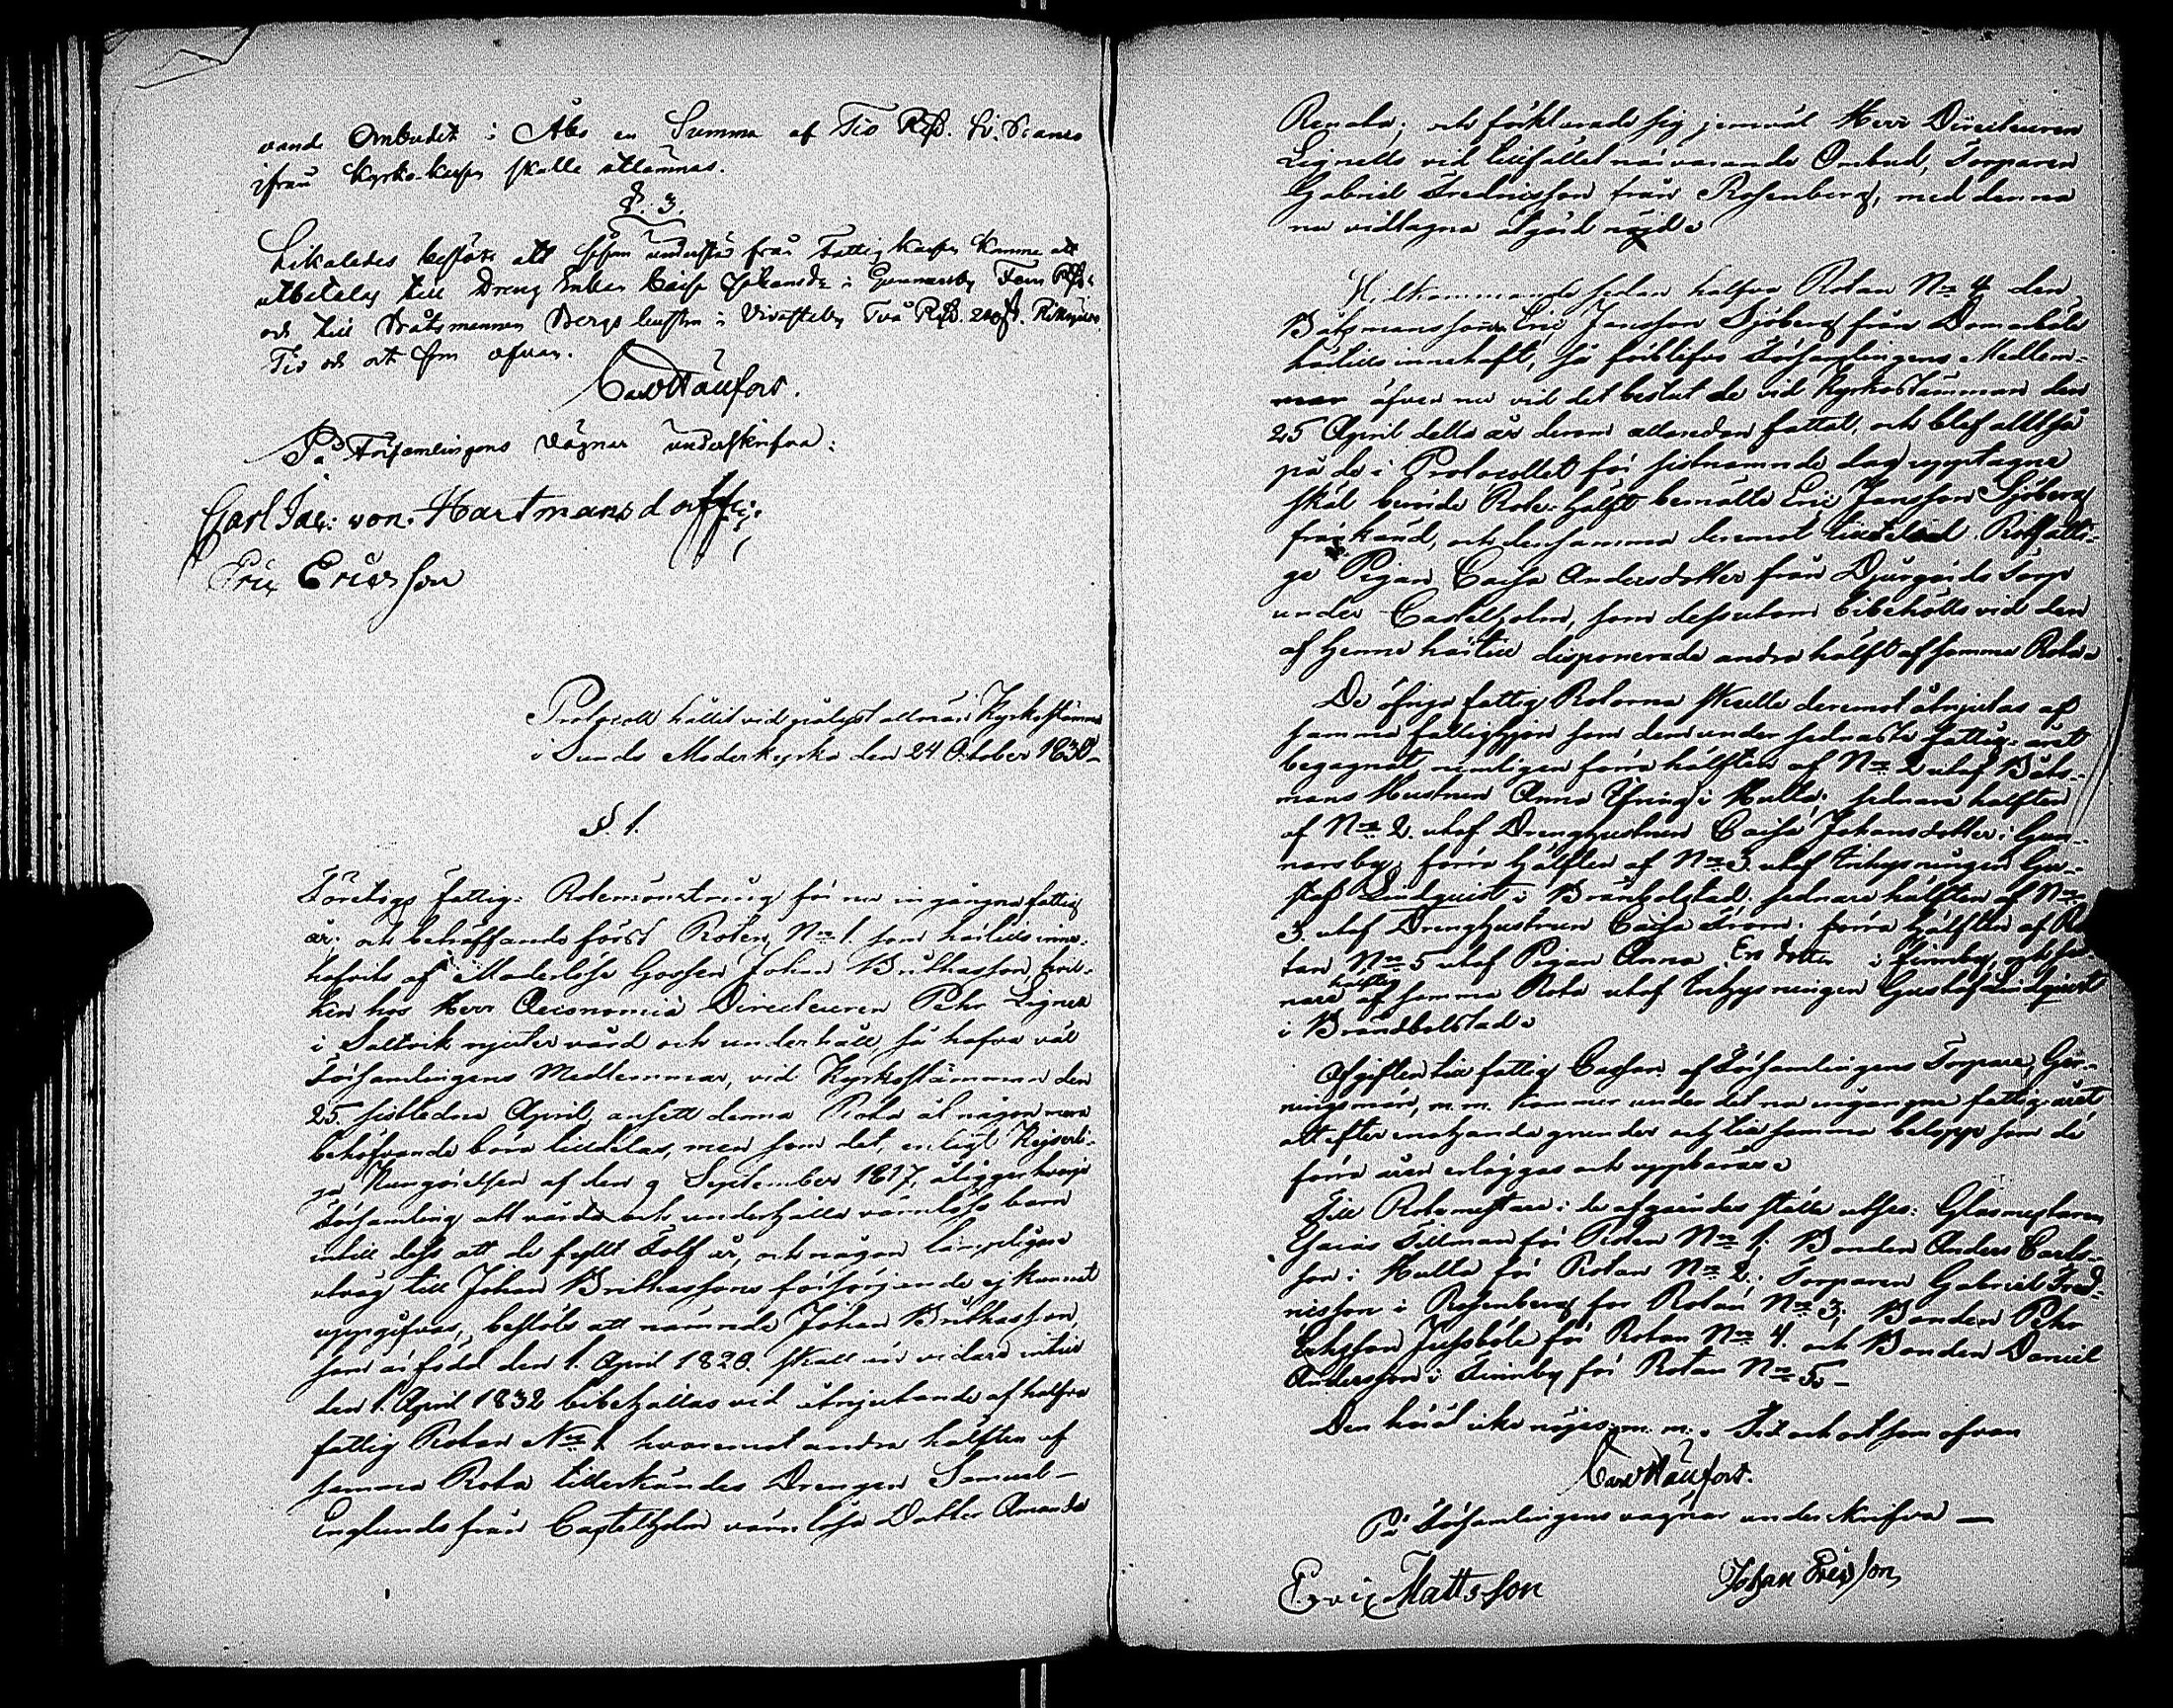 vande Ombudet i Åbo en Summa af Tio Rubl. Bco Assign.
ifrån Kyrko-Kassan skulle utlämnas.
§. 3.
Likaledes beslöts att såsom understöd från Fattig Kassan komme att
utbetalas till Dreng Enkan Caisa Johansdr i Gunnarsby Fem Rubl.
och till Båtsmannen Bergs hustru i Vivastby Två Rubl.
Tid och ort som ofvan.
Carl Häufort.
På Församlingens vägnar underskrifva:
Carl Jac: von Hartmansdorff;
Eric Ericsson
Protocoll hållit vid pålyst allmän Kyrkostämma
i Sunds Moderkyrka den 24 October 1830
§. 1.
Företogs fattig-Rotemönstring för nu ingångna fattig
år; och beträffande först Rotan No 1. som härtills inne-
hafvits af Moderlöse Gossen Johan Brithasson, hvil-
ken hos Herr Oeconomie Directeuren Pehr Lignell
i Saltvik njuter vård och underhåll, så hafva väl
Församlingens Medlemmar, vid Kyrkostämman den
25. sistledne April, ansett denna Rota åt någon mera
behöfvande böra tilldelas, men som det, enligt Kejserli-
ga Kungörelsen af den 9 September 1817, åligger hvarje
Församling att vårda och underhålla värnlösa barn
intill dess att de fyllt Tolf år, och någon lämpligare
utväg till Johan Brithassons försörjande ej kunnat
uppgifvas, beslöts att nämnde Johan Brithasson,
som är född den 1. April 1820. skall än vidare intill
den 1. April 1832 bibehållas vid åtnjutande af halfva
fattig Rotan No 1 hvaremot andra hälften af
samma Rota tillerkändes Drengen Samuel
Englunds från Castelholm värnlösa Dotter Amanda
Renata; och förklarade sig jemväl Herr Directeuren
Lignells vid tillfället närvarande Ombud, Torparen
Gabriel Fredricsson från Rosenberg, med denna
nu vidtagna åtgärd nöjd.
Vidkommande sedan halfva Rotan No 4 den
Båtsmanssonen Eric Jansson Sjöberg från Domarböle
härtills innehaft, så förblefvo Församlingens Medlem-
mar äfven nu vid det beslut de vid Kyrkostämman den
25 April detta år derom allaredan fattat, och blef alltså
på de i Protocollet för sistnämnde dag upptagne
skäl berörde Rote-hälft bemälte Eric Jansson Sjöberg
frånkänd, och densamma deremot tilldelad Rotfatti-
ge Pigan Caisa Andersdotter från Djurgårds Torp
under Castelholm, som dessutom bibehölls vid den
af henne härtill disponerade andra hälft af samma Rota.
De öfriga fattig Rotorna skulle deremot åtnjutas af
samma fattighjon som dem under sednaste fattig-året
begagnat nemligen förra hälften af No 2 utaf Båts-
mans Hustrun Anna Thring i Hulta; sednare hälften
af No 2. utaf Drenghustrun Caisa Johansdotter i Gun-
narsby; förra hälften af No 3. utaf Inhysningen Gu-
staf Lindquist i Brändbolstad; sednare hälften af No
3. utaf Drenghustrun Caisa Ström; förra hälften af Ro
tan No 5 utaf Pigan Anna Ersdotter i Finnby, och sed-
nare hälften af samma Rota utaf Inhysningen Gustaf Lindquist
i Brändbolstad.
Afgiften till fattig Cassan af Församlingens Torpare, Ger-
ningsmän, m.m. kommer under det nu ingångne fattig-året
att efter enahanda grunder och till samma belopp som de
förra åren erläggas och uppbäras.
Till Rotemästare i de afgåendes ställe utses: Glasmästaren
Tillman för Rotan No 1; Bonden Anders Carls-
son i Hulta för Rotan No 2; Torparen Gabriel Fred-
ricsson i Rosenberg för Rotan No 3; Bonden Pehr
Ericsson Jussböle för Rotan No 4. och Bonden Daniel
Andersson i Finnby för Rotan No 5.
Den häråt icke nöjes m.m. Tid och ort som ofvan
Carl Häufort.
På Församlingens vägnar underskrifva
Eric Mattsson Johan Ericsson